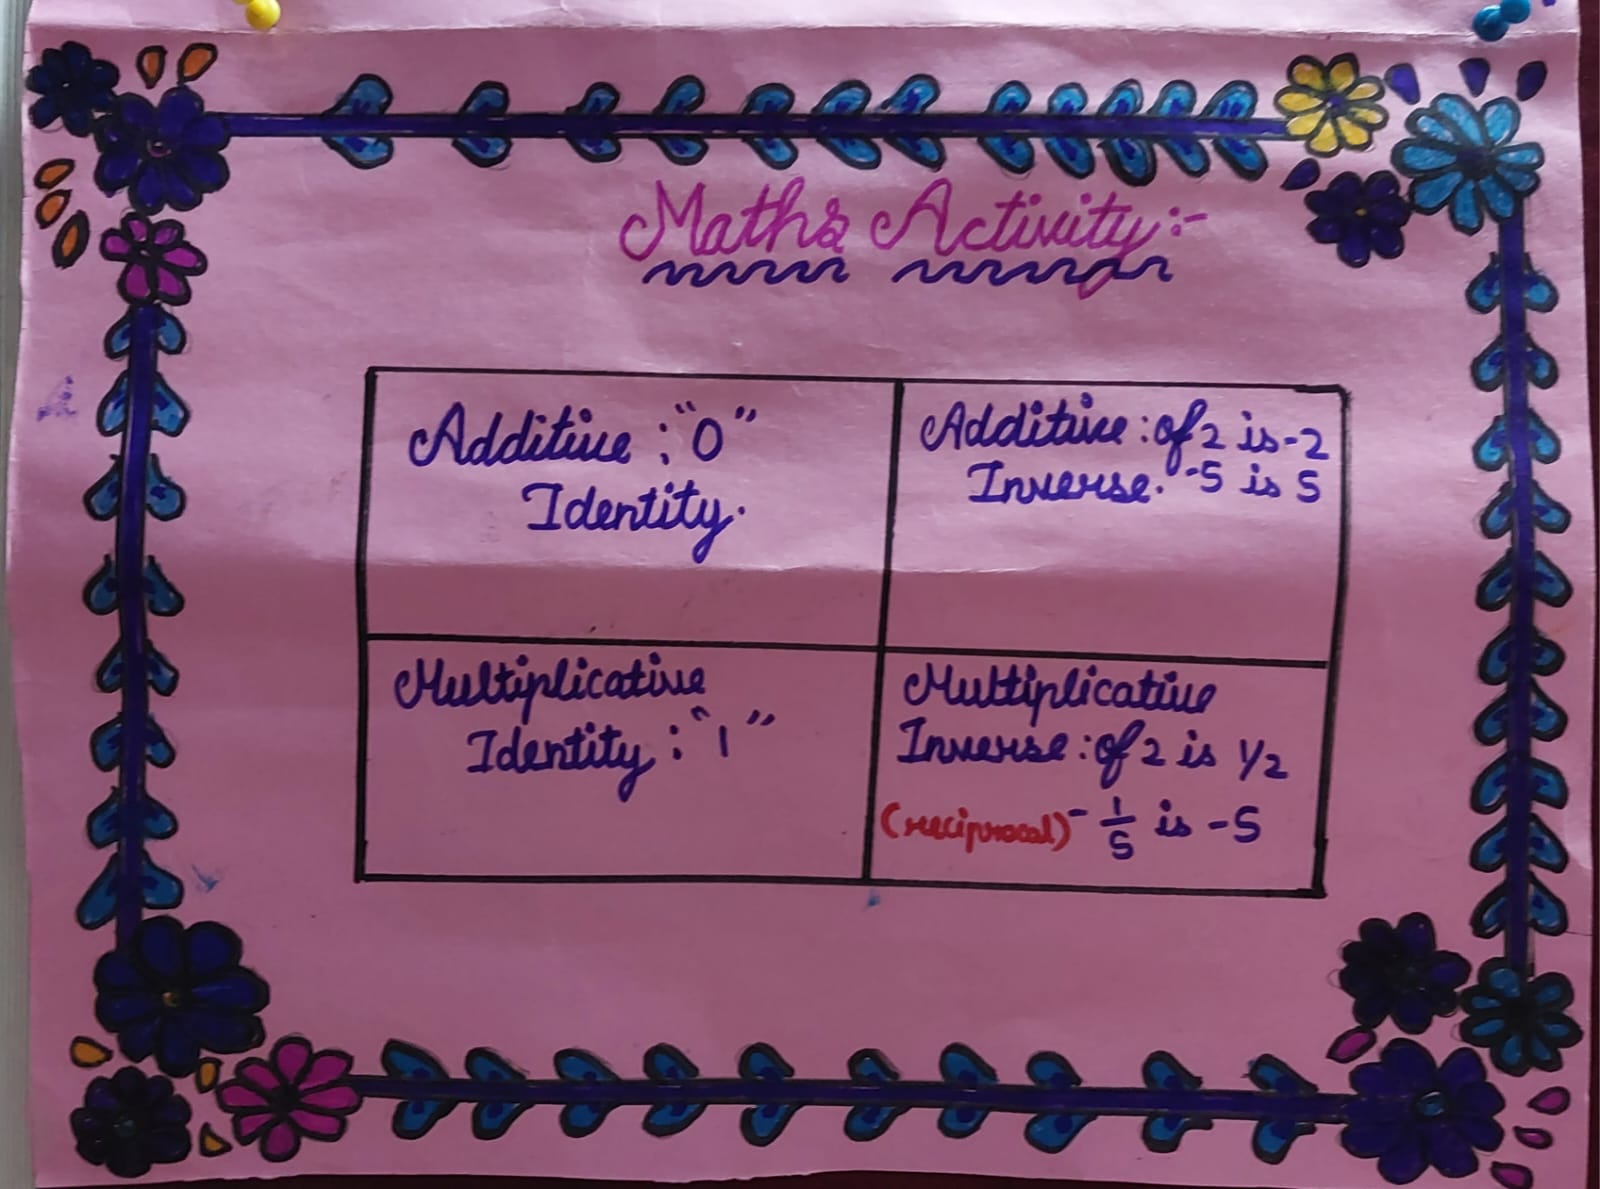 Maths Activity:-
Additive : "0"
Identity.
Additive : of 2 is -2
Inverse. -5 is 5
Multiplicative
Identity : "1"
Multiplicative
Inverse : of 2 is 1/2
(reciprocal) - 1/5 is -5